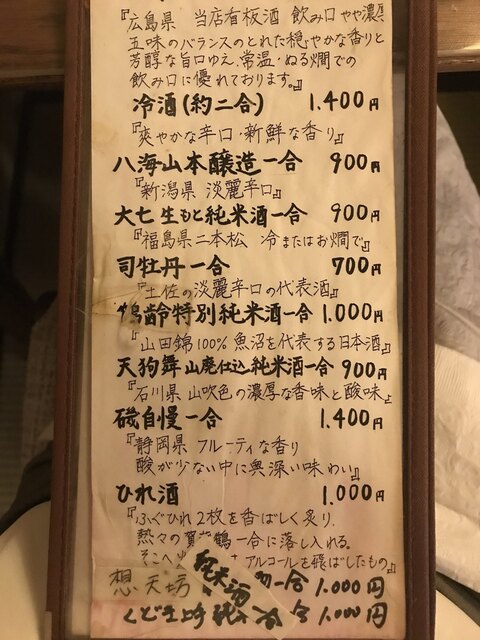 『広島県 当店看板酒 飲み口やや濃厚
五味のバランスのとれた穏やかな香りと
芳醇な旨口ゆえ、常温・ぬる燗での
飲み口に優れております。』
冷酒(約二合) 1.400円
『爽やかな辛口・新鮮な香り』
八海山本醸造一合 900円
『新潟県 淡麗辛口』
大七生もと純米酒一合 900円
『福島県二本松 冷またはお燗で』
司牡丹一合 700円
『土佐の淡麗辛口の代表酒』
鶴齢特別純米酒一合 1.000円
『山田錦100% 魚沼を代表する日本酒』
天狗舞山廃仕込純米酒一合 900円
『石川県 山吹色の濃厚な香味と酸味』
磯自慢一合 1.400円
『静岡県 フルーティな香り
酸が少ない中に奥深い味わい』
ひれ酒 1.000円
『ふぐひれ2枚を香ばしく炙り、
熱々の賀茂鶴一合に落し入れる。
そこへ アルコールを飛ばしたもの』
想天坊 純米酒 一合 1.000円
くどき上手 純 合 1.000円